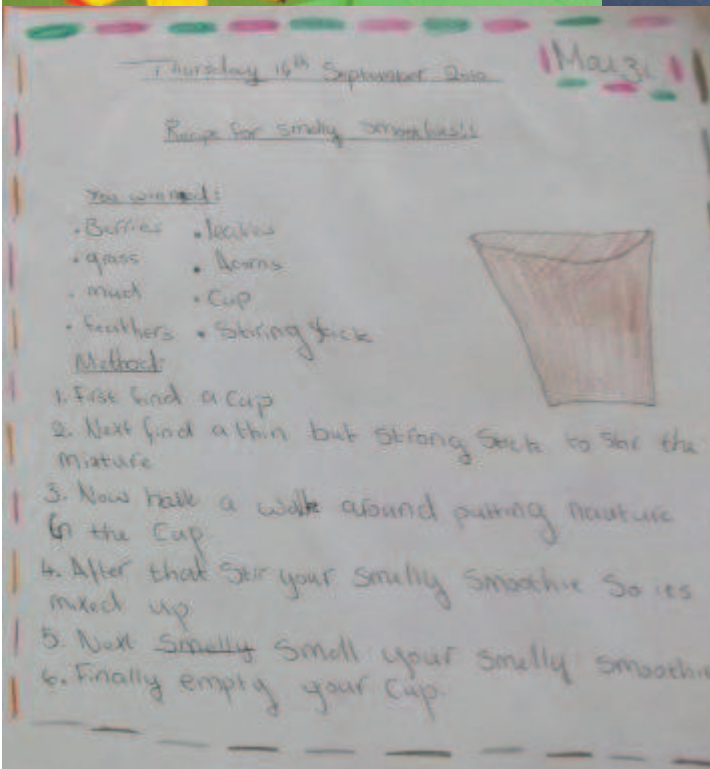 Thursday 16th September 2010
Mauzi
Recipe for smelly smoothies!!
You will need:
. Berries . leaves
. grass . Acorns
. mud . Cup
. feathers . Stiring stick
Method:
1. First find a cup
2. Next find a thin but strong stick to stir the
mixture
3. Now have a walk around putting nauture
in the cup
4. After that stir your smelly smoothie so its
mixed up
5. Next smelly smell your smelly smoothie
6. Finally empty your cup.